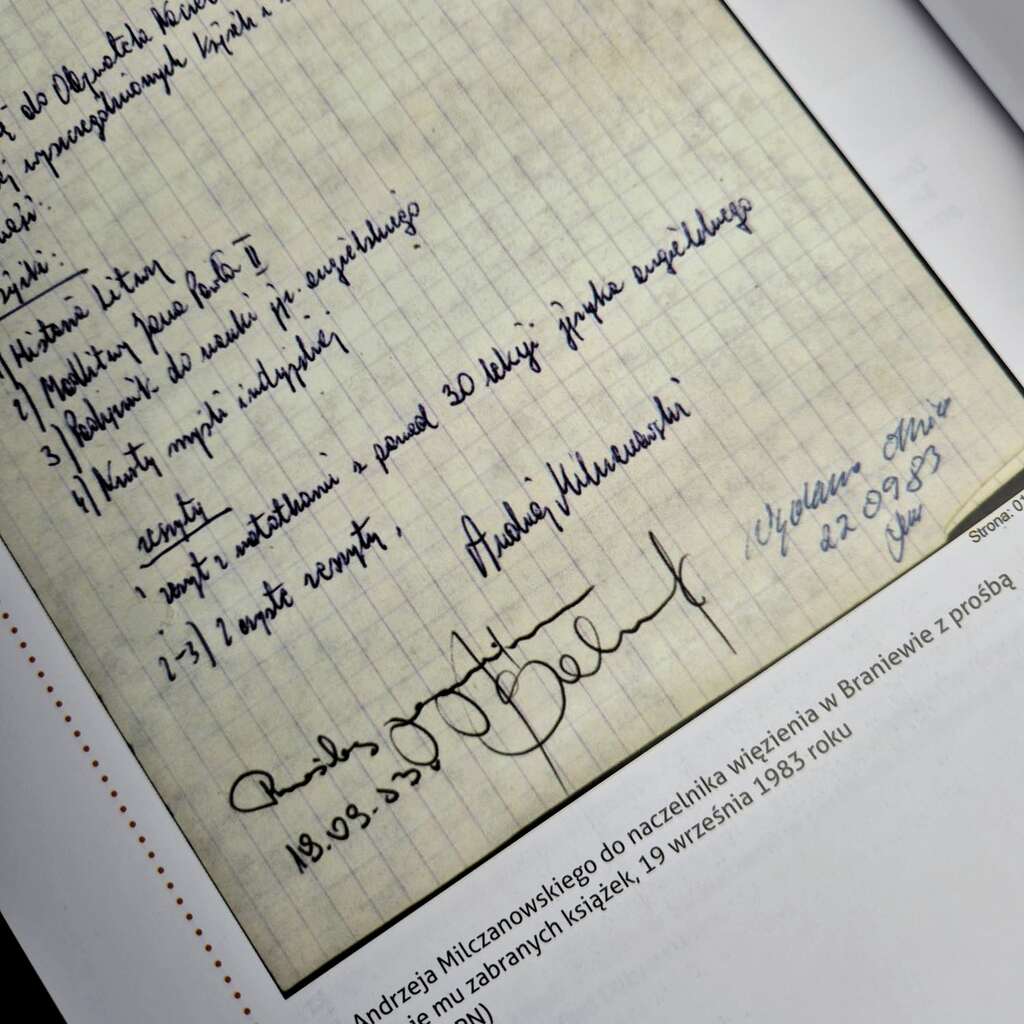 do Obywatela
wyszczególnionych książek i
1) Historia Litwy
2) Modlitwy Jana Pawła II
3) Podręcznik do nauki jęz. angielskiego
4) Nurty myśli indyjskiej
zeszyty
1 zeszyt z notatkami z ponad 30 lekcji języka angielskiego
2-3) 2 czyste zeszyty,
Andrzej Milczanowski
Wydano
22 09 83
19.09.83
Strona: 01
Andrzeja Milczanowskiego do naczelnika więzienia w Braniewie z prośbą
mu zabranych książek, 19 września 1983 roku